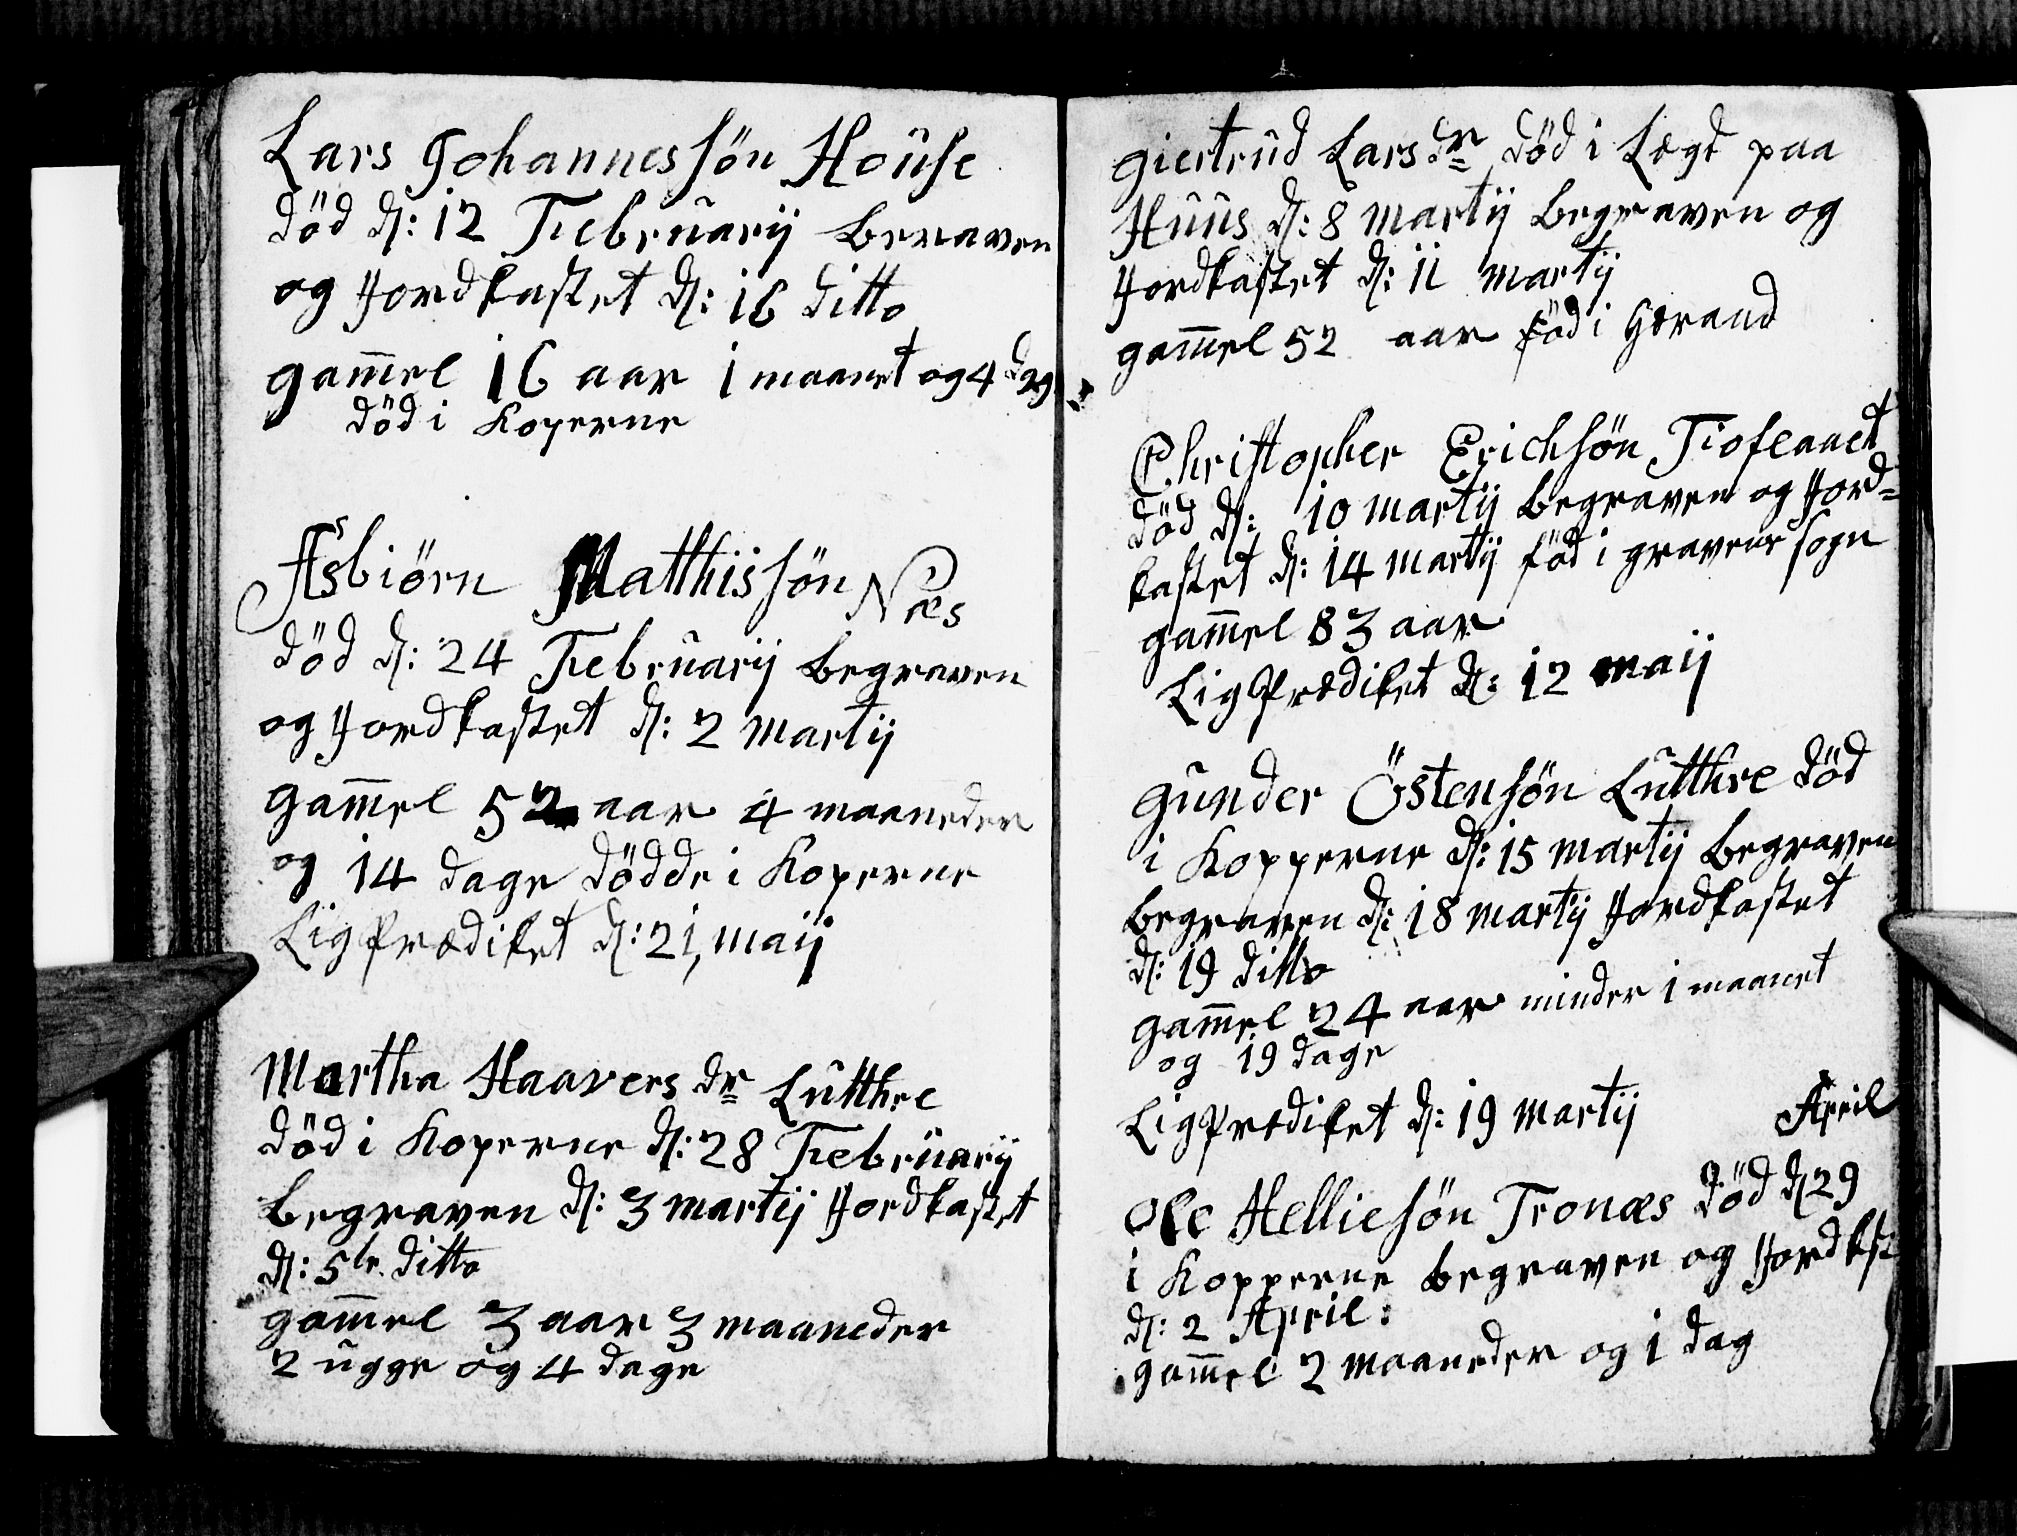 Lars Johannessön House
död d: 12 Februarij Beraven
og Jordkastet d: 16 ditto
gam̄el 16 aar 1 maanet og 4 dag
död i Koperne
Asbiörn Matthissön Næs
död d: 24 Februarij Begraven
og Jordkastet d: 2 Martij
gam̄el 52 aar 4 maaneder
og 14 dage dödde i Koperne
LigPrædiket d: 21, maij
Martha Haavers dr Lutthre
död i Koperne d: 28 Februarij
Begraven d: 3 martij Jordkastet
d: 5te ditto
gam̄el 3 aar 3 maaneder
2 ugge og 4 dage
giertrud Lars dr död i Lægd paa
Huus d: 8 Martij Begraven og
Jordkastet d: 11 Martij
gam̄el 52 aar föd i
Christopher Erichsön Tioflaaet
död d: 10 Martij Begraven og Jord=
kastet d: 14 Martij föd i gravens sogn
gam̄el 83 aar
LigPrædiket d: 12 maij
gunder Östensön Lutthre död
i Kopperne d: 15 Martij Begraven
Begraven d: 18 Martij Jordkastet
d: 19 ditto
gam̄el 24 aar minder 1 maanet
og 19 dage
LigPrædiket d: 19 Martij
April
Ole Helliesön Tronæs död d 29
i Kopperne Begraven og Jordkst
d: 2 April:
gam̄el 2 Maaneder og 1 dag